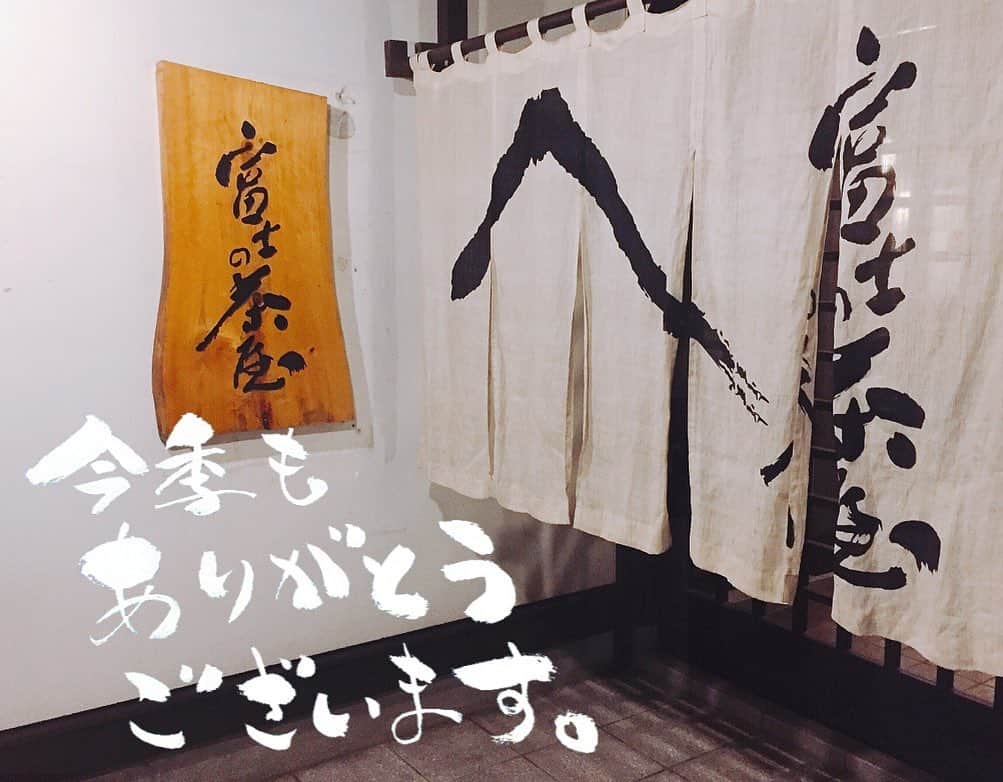 富士の茶屋
富士の茶屋
今季も
ありがとう
ございます。